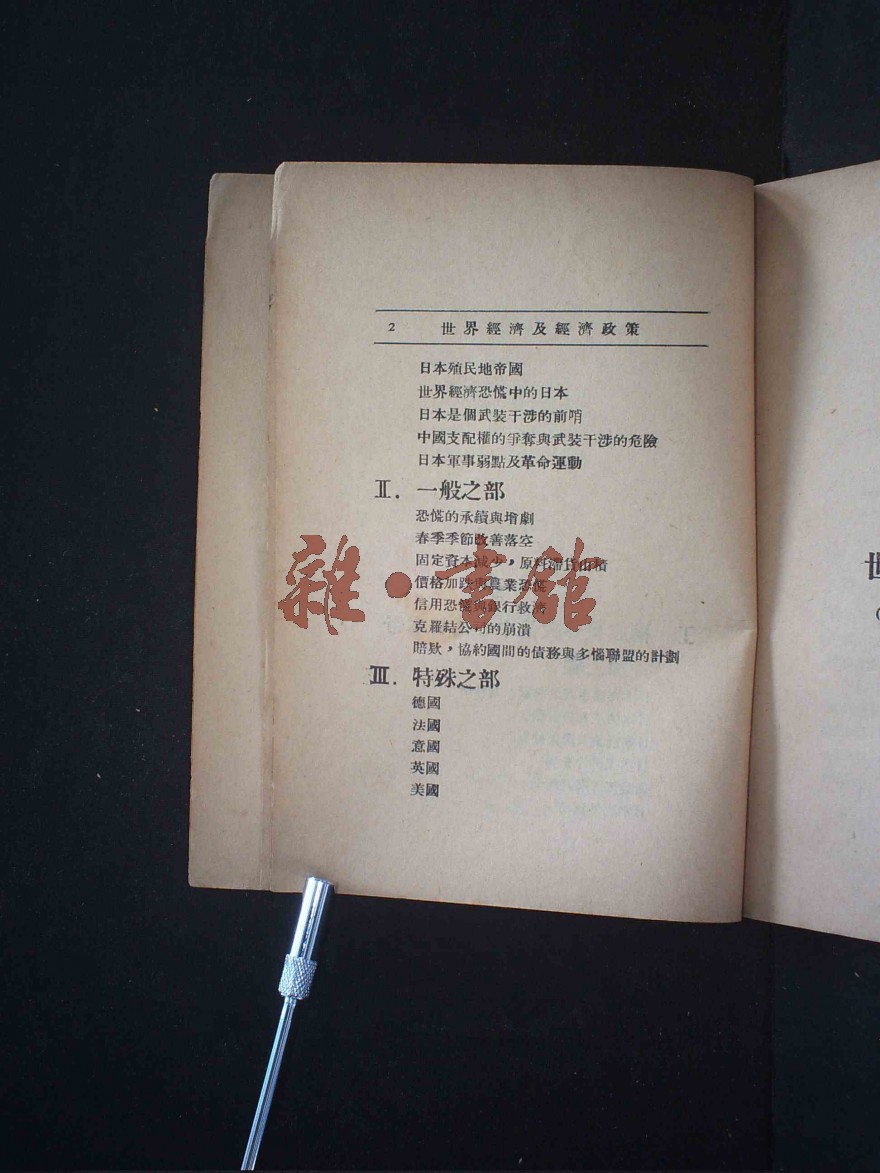 2 世界經濟及經濟政策
日本殖民地帝國
世界經濟恐慌中的日本
日本是個武裝干涉的前哨
中國支配權的爭奪與武裝干涉的危險
日本軍事弱點及革命運動
Ⅱ. 一般之部
恐慌的承續與增劇
春季季節改善落空
固定資本減少，原料滯貨山積
價格加跌與農業恐慌
信用恐慌與銀行救濟
克羅結公司的崩潰
賠欵，協約國間的債務與多惱聯盟的計劃
Ⅲ. 特殊之部
德國
法國
意國
英國
美國
雜·書館
世